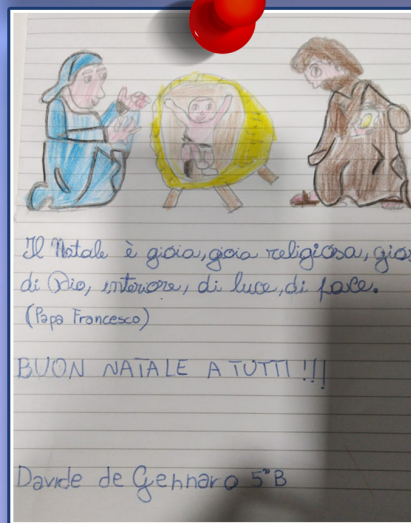 Il Natale è gioia, gioia religiosa, gio
di Dio, interiore, di luce, di pace.
(Papa Francesco)
BUON NATALE A TUTTI!!!
Davide de Gennaro 5°B